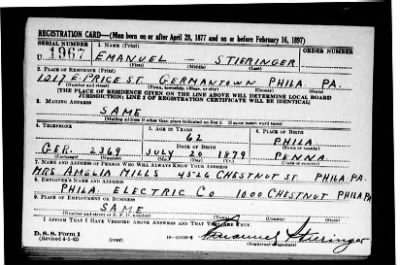 REGISTRATION CARD—(Men born on or after April 28, 1877 and on or before February 16, 1897)
SERIAL NUMBER 1. NAME (Print) ORDER NUMBER
U 1967 EMANUEL — STIERINGER
(First) (Middle) (Last)
2. PLACE OF RESIDENCE (Print)
1017 E. PRICE ST. GERMANTOWN PHILA PA.
(Number and street) (Town, township, village, or city) (County) (State)
[THE PLACE OF RESIDENCE GIVEN ON THE LINE ABOVE WILL DETERMINE LOCAL BOARD
JURISDICTION; LINE 2 OF REGISTRATION CERTIFICATE WILL BE IDENTICAL]
3. MAILING ADDRESS
SAME
[Mailing address if other than place indicated on line 2. If same insert word same]
4. TELEPHONE 5. AGE IN YEARS 6. PLACE OF BIRTH
62 PHILA
DATE OF BIRTH (Town or county)
GER. 2369 JULY 20 1879 PENNA
(Mo.) (Day) (Yr.)
7. NAME AND ADDRESS OF PERSON WHO WILL ALWAYS KNOW YOUR ADDRESS
MRS AMELIA MILLS 4526 CHESTNUT ST. PHILA. PA.
8. EMPLOYER'S NAME AND ADDRESS
PHILA. ELECTRIC CO 1000 CHESTNUT PHILA PA
9. PLACE OF EMPLOYMENT OR BUSINESS
SAME
(Number and street or R. F. D. number) (Town) (County) (State)
I AFFIRM THAT I HAVE VERIFIED ABOVE ANSWERS AND THAT THEY ARE TRUE.
D. S. S. Form 1
(Revised 4-1-42) (over) Emanuel Stieringer
(Registrant's signature)